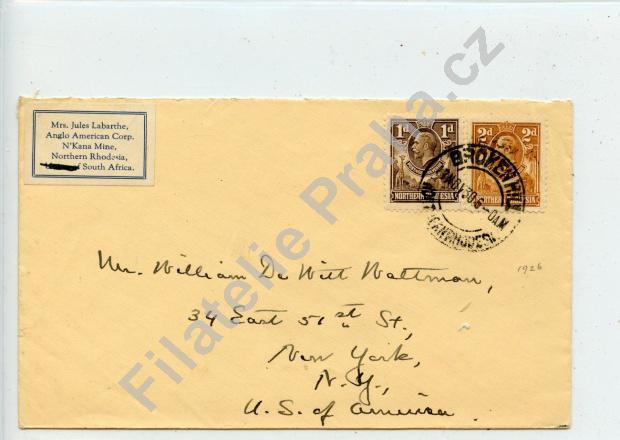 Mrs. Jules Labarthe,
Anglo American Corp.
N'Kana Mine,
Northern Rhodesia,
of South Africa.
1d 1d
2d 2d
NORTHERN RHODESIA
NORTHERN RHODESIA
BROKEN HILL
30
Mr. William De Witt Wattman,
34 East 51st St.,
New York,
N.Y.,
U.S. of America.
1926
Filatelie Praha.cz